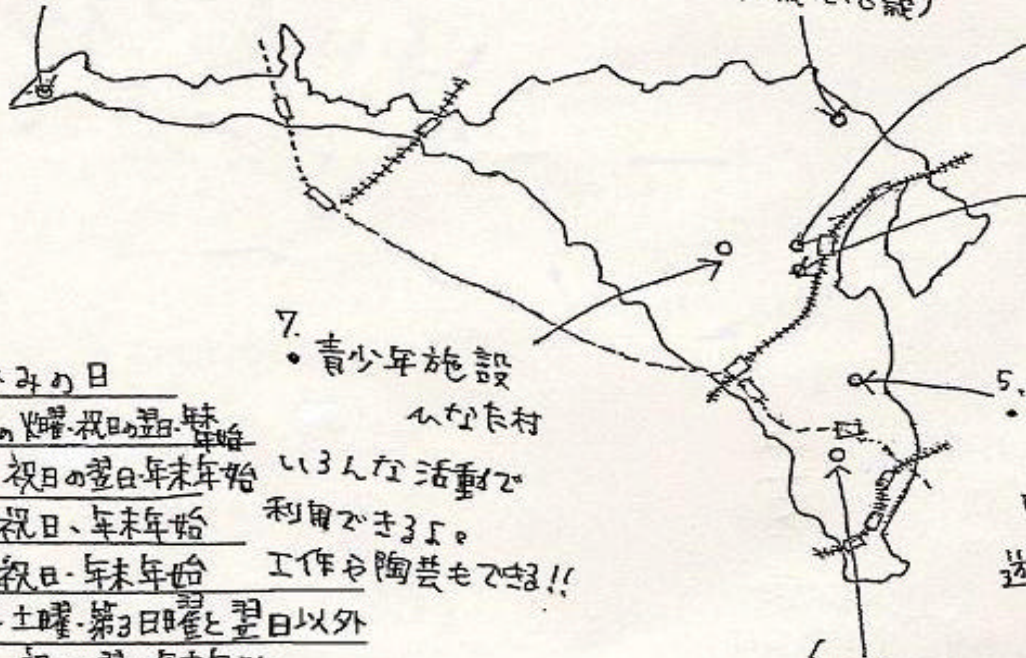 7.
・青少年施設
ひなた村
いろんな活動で
利用できるよ。
工作や陶芸もできる!!
みの日
火曜・祝日の翌日・年末年始
祝日の翌日・年末年始
祝日、年末年始
祝日・年末年始
土曜・第3日曜と翌日以外
5.